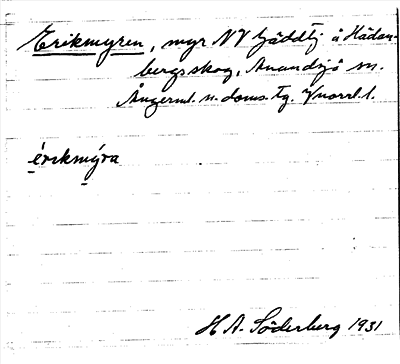 Erikmyren, myr NV Gäddtj. å Hädan-
bergs skog, Anundsjö sn.
Ångerml. n. doms. tg. Vnorrl. l.
érikmýra
H A. Söderberg 1931